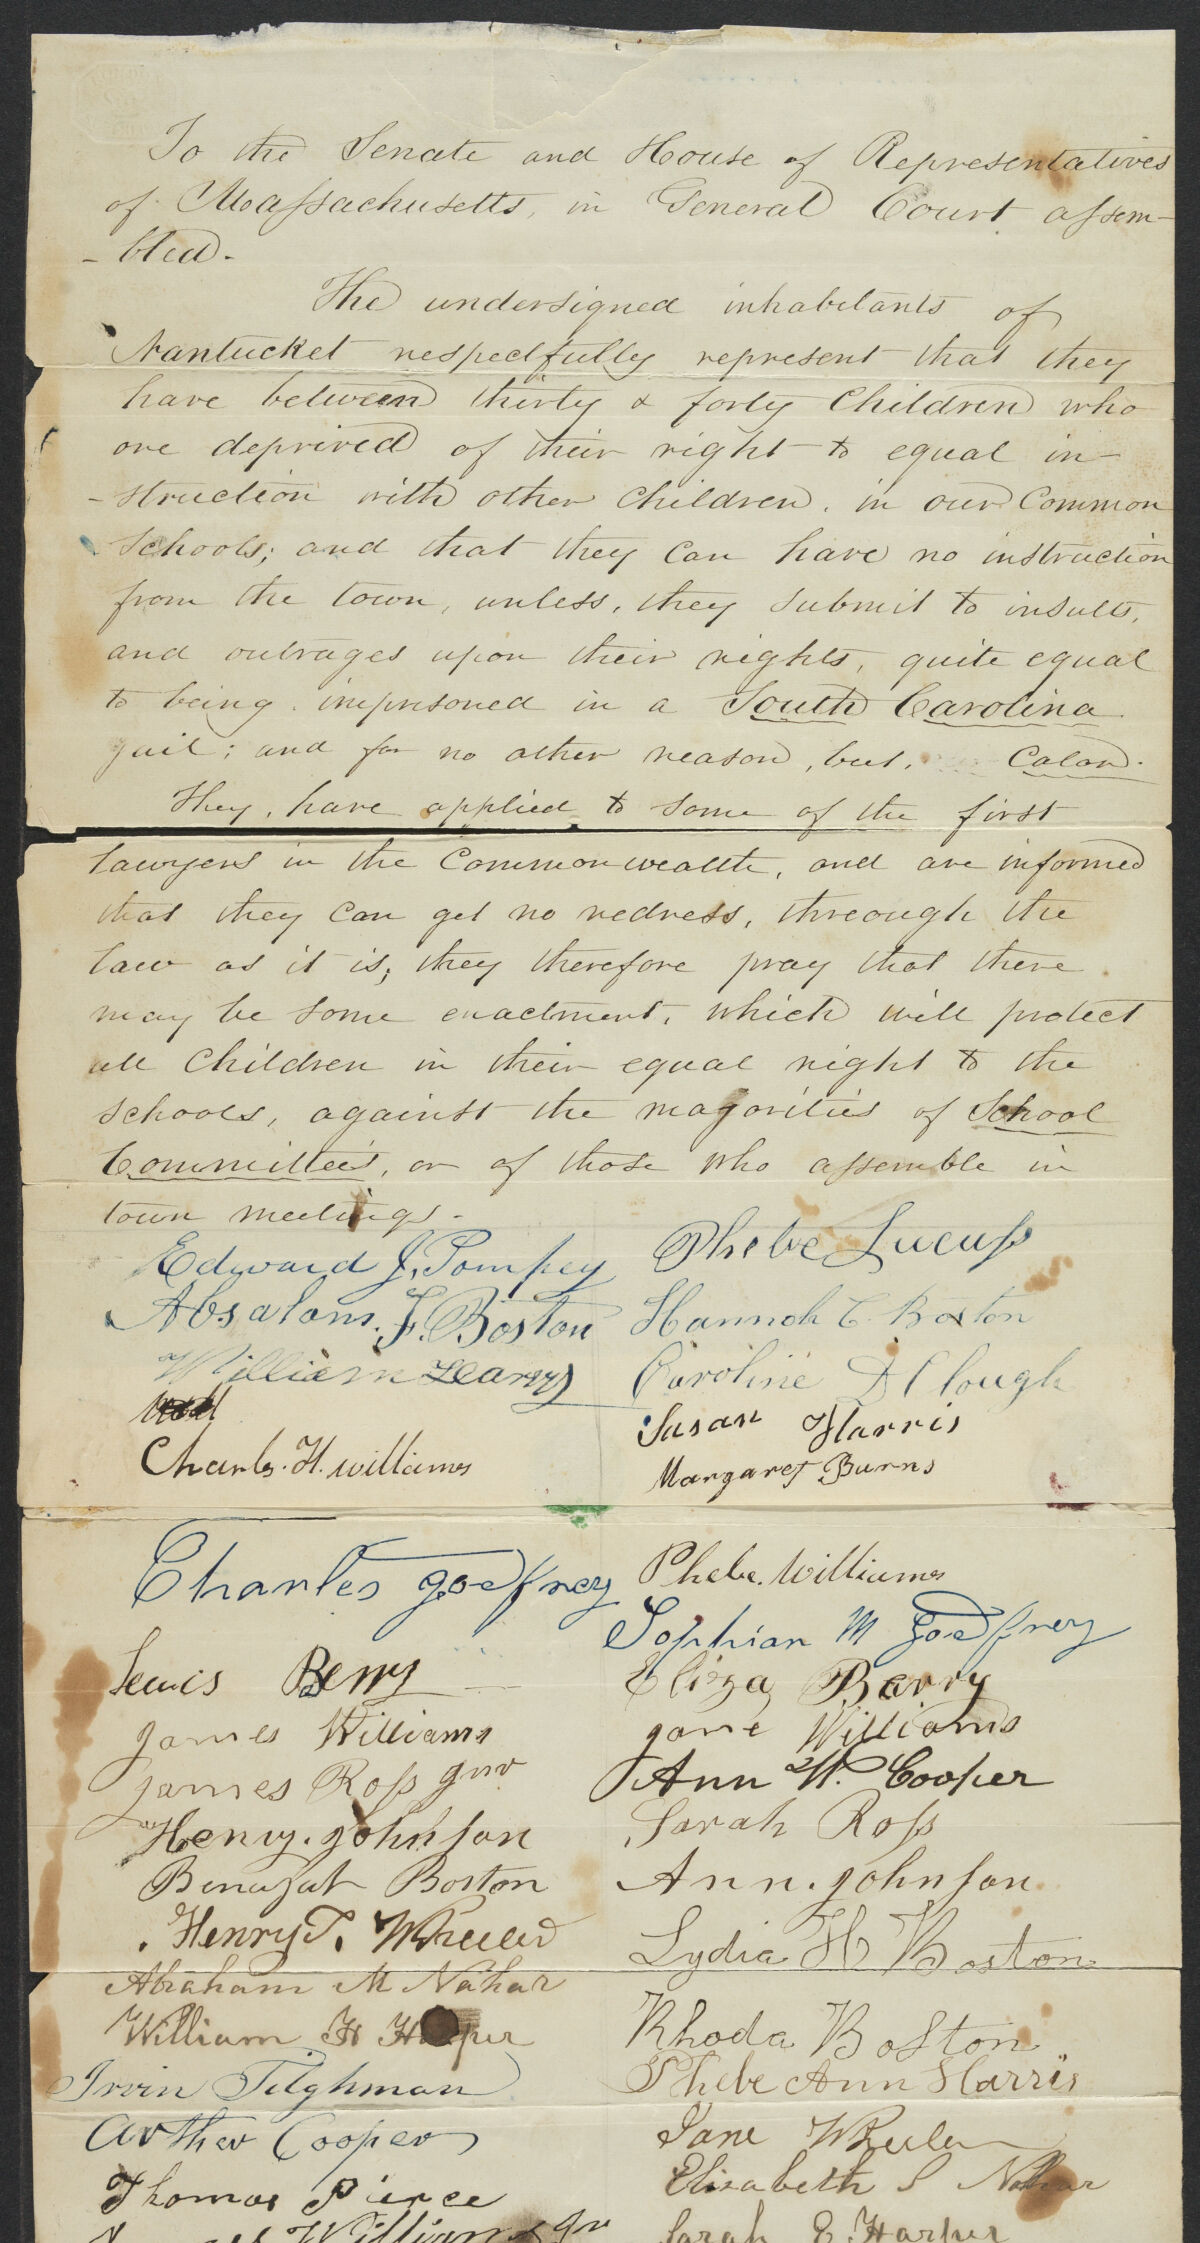 To the Senate and House of Representatives
of Massachusetts, in General Court assem-
-bled.
The undersigned inhabitants of
Nantucket respectfully represent that they
have between thirty & forty Children who
are deprived of their right to equal in-
-struction with other children, in our Common
Schools; and that they can have no instruction
from the town, unless, they submit to insults,
and outrages upon their rights, quite equal
to being imprisoned in a South Carolina
jail; and for no other reason, but, Color.
They, have applied to some of the first
lawyers in the Commonwealth, and are informed
that they can get no redress, through the
law as it is; they therefore pray that there
may be some enactment, which will protect
all Children in their equal right to the
schools, against the majorities of School
Committees, or of those who assemble in
town meetings.
Edward J. Pompey
Absalom. F. Boston
William Harvy
Charles. H. Williams
Charles godfrey
Lewis Berry
James Williams
James Ross Jnr
Henry. Johnson
Benajah Boston
Henry T. Wheeler
Abraham M Nahar
William H Harper
Irvin Tilghman
Arther Cooper
Thomas Pierce
Williams Jnr
Phebe Lucuss
Hannah C. Boston
Caroline D Clough
Susan Harris
Margaret Burns
Phebe. Williams
Sophian M Godfrey
Eliza Barry
Jane Williams
Ann W. Cooper
Sarah Ross
Ann. Johnson
Lydia H Boston
Rhoda Boston
Phebe Ann Harris
Jane Wheeler
Elisabeth S Nahar
Sarah E. Harper